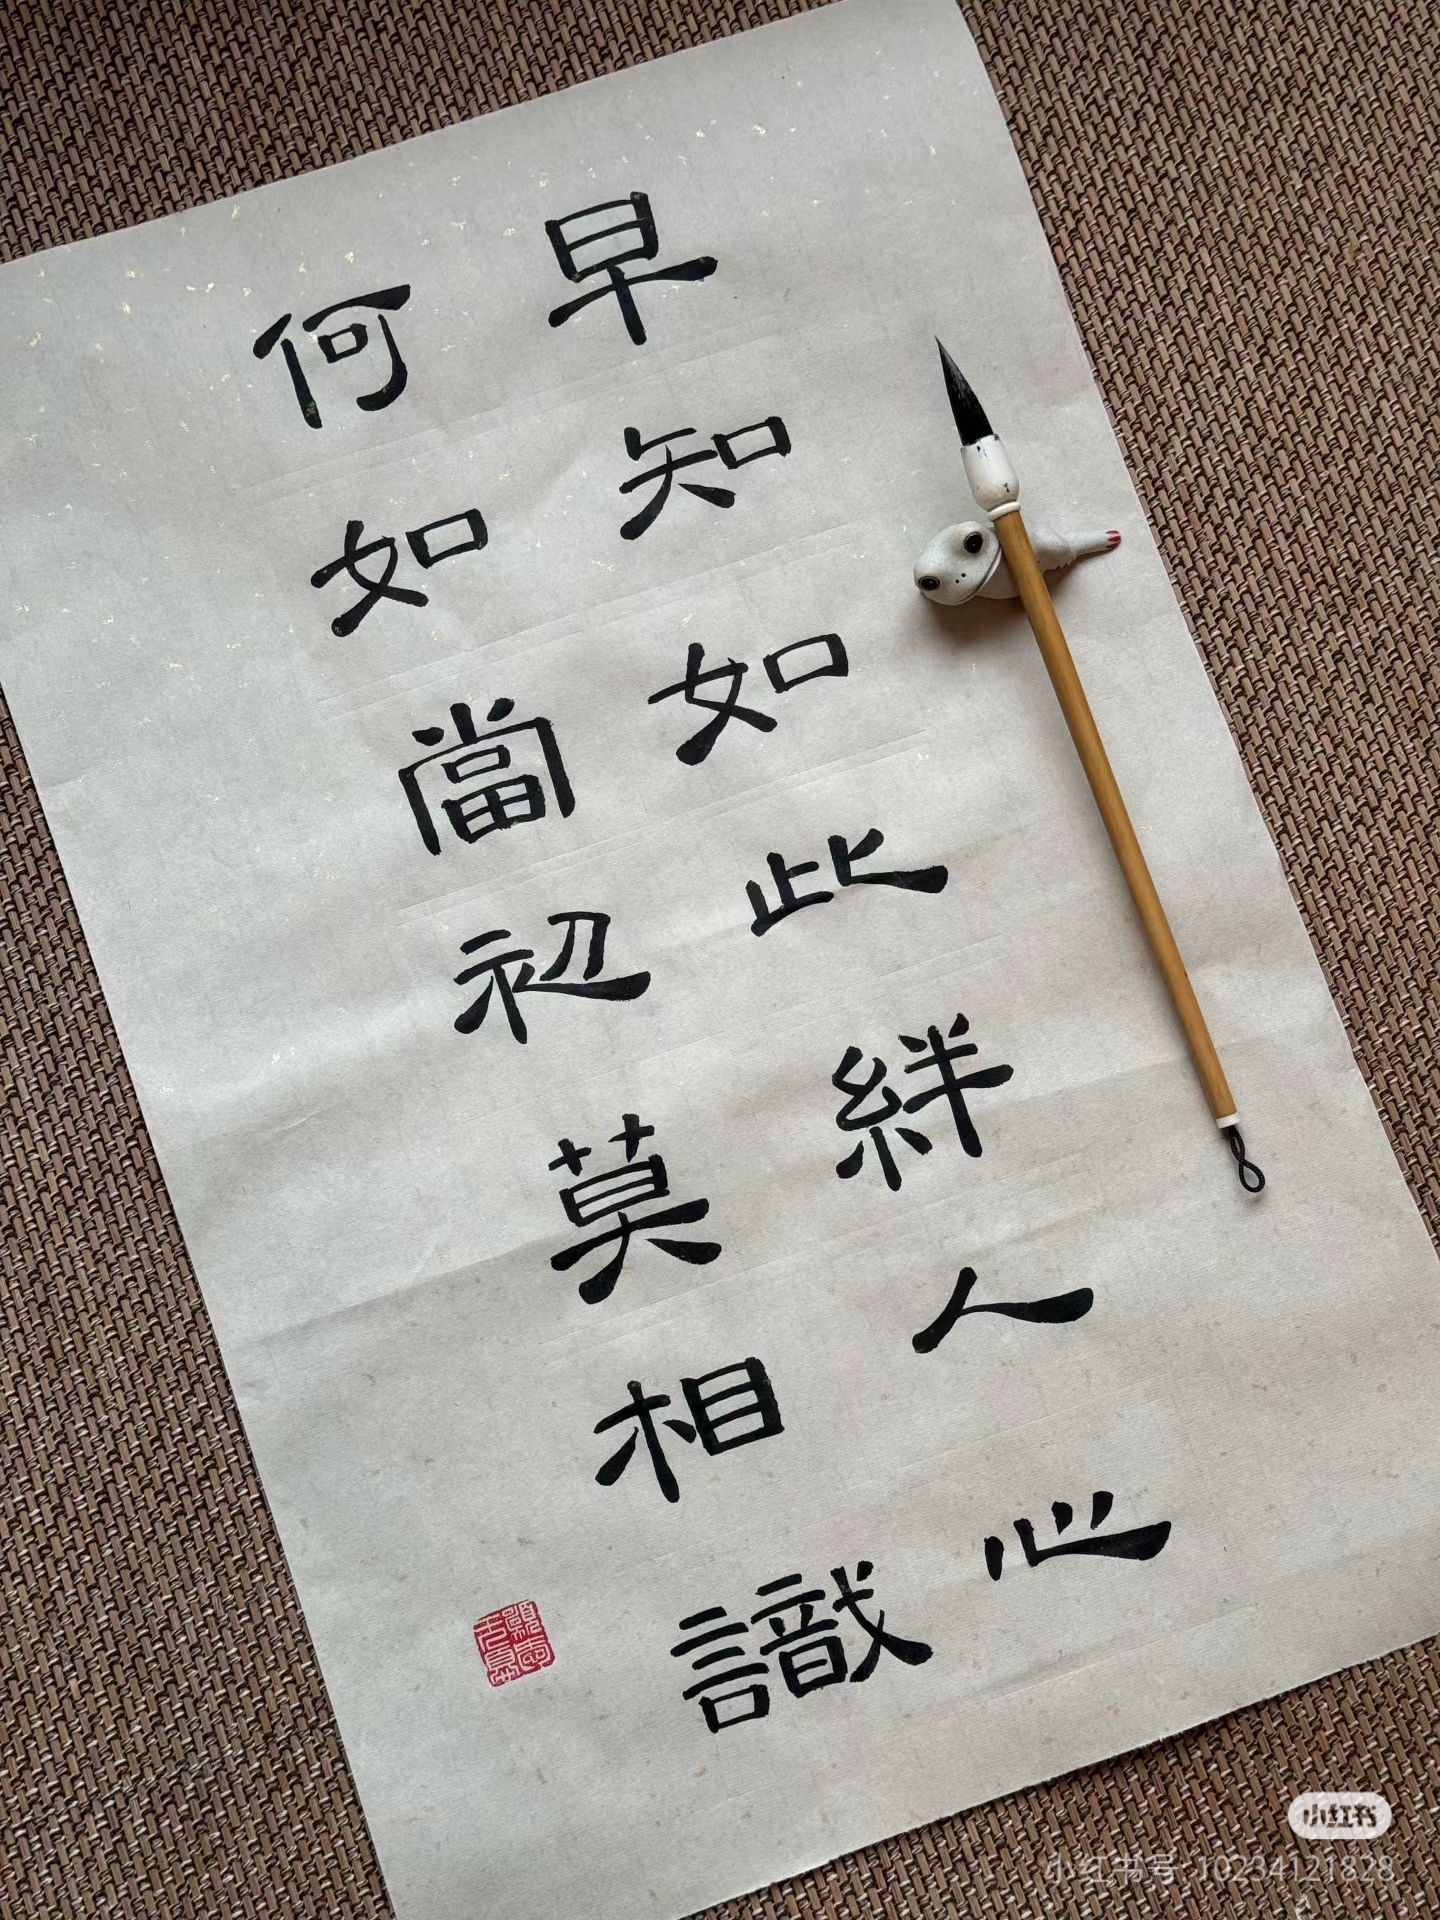 早知如此絆人心
何如當初莫相識
小红书
小红书号:10234121828